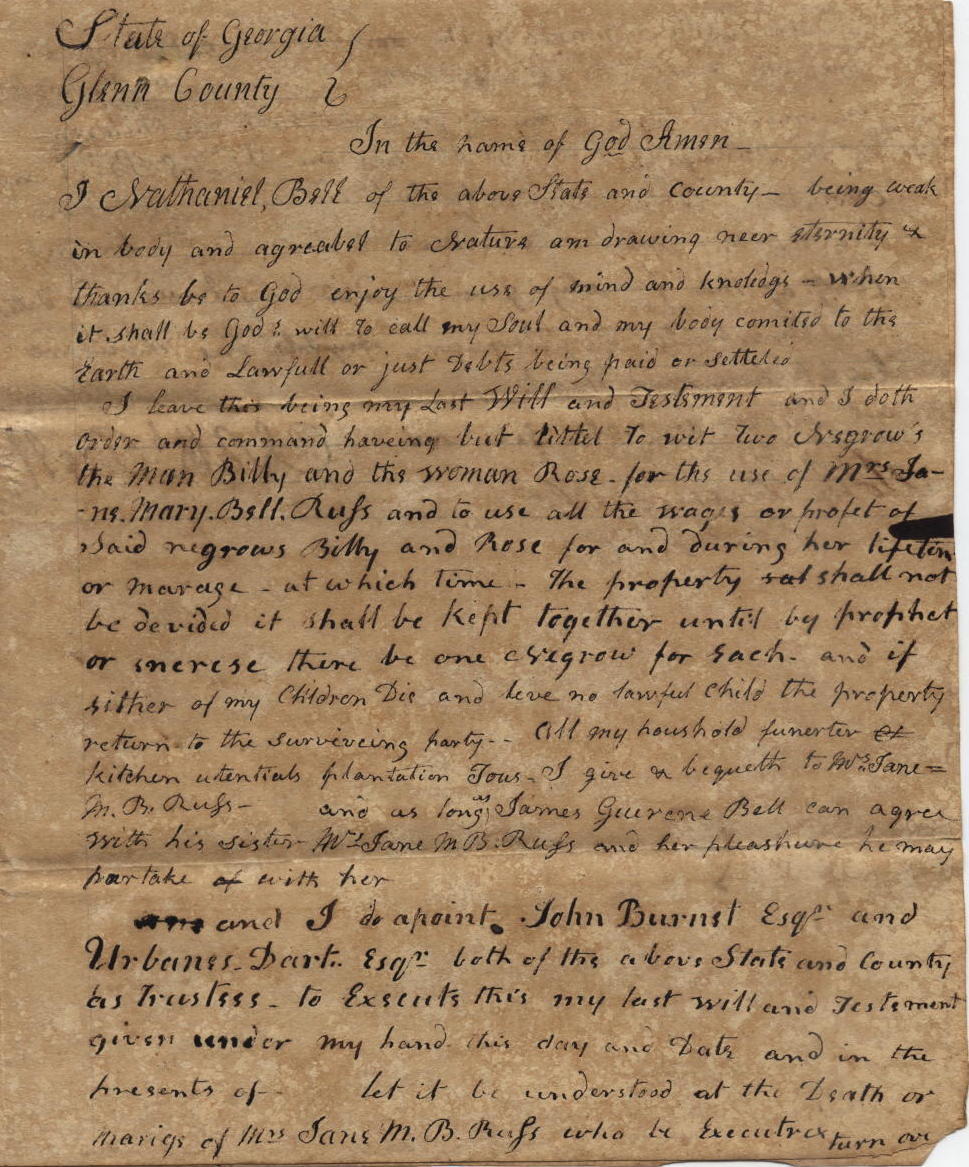 State of Georgia
Glenn County
In the name of God Amen
I Nathaniel, Bell of the above State and County - being weak
in body and agreabel to Nature am drawing neer eternity &
thanks be to God enjoy the use of mind and knoledge - when
it shall be God's will to call my Soul and my body comited to the
Earth and Lawfull or just Debts being paid or settled
I leave this being my Last Will and Testement and I doth
order and command haveing but littel to wit two Negrow's
the Man Billy and the woman Rose. for the use of Mrs Ja-
-ne. Mary. Bell. Russ and to use all the wages or profet of
Said negrows Billy and Rose for and during her lifetim
or marage - at which time - The property shall not
be devided it shall be kept together until by prophet
or increse there be one Negrow for each. and if
either of my Children Die and leve no lawful Child the property
return to the surviveing party - - All my houshold funerter
kitchen utentials plantation Tous - I give & bequeth to Mrs. Jane =
M. B. Russ - and as long as James Guerene Bell can agree
with his sister Mrs Jane M B. Russ and her pleashure he may
partake of with her
and I do apoint. John Burnet Esqr and
Urbanes - Dart. Esqr both of the above State and County
as Trustees - to Execute this my last will and Testement
given under my hand this day and Date and in the
presents of - let it be understood at the Death or
marige of Mrs Jane M. B. Russ who be Executrex turn ove